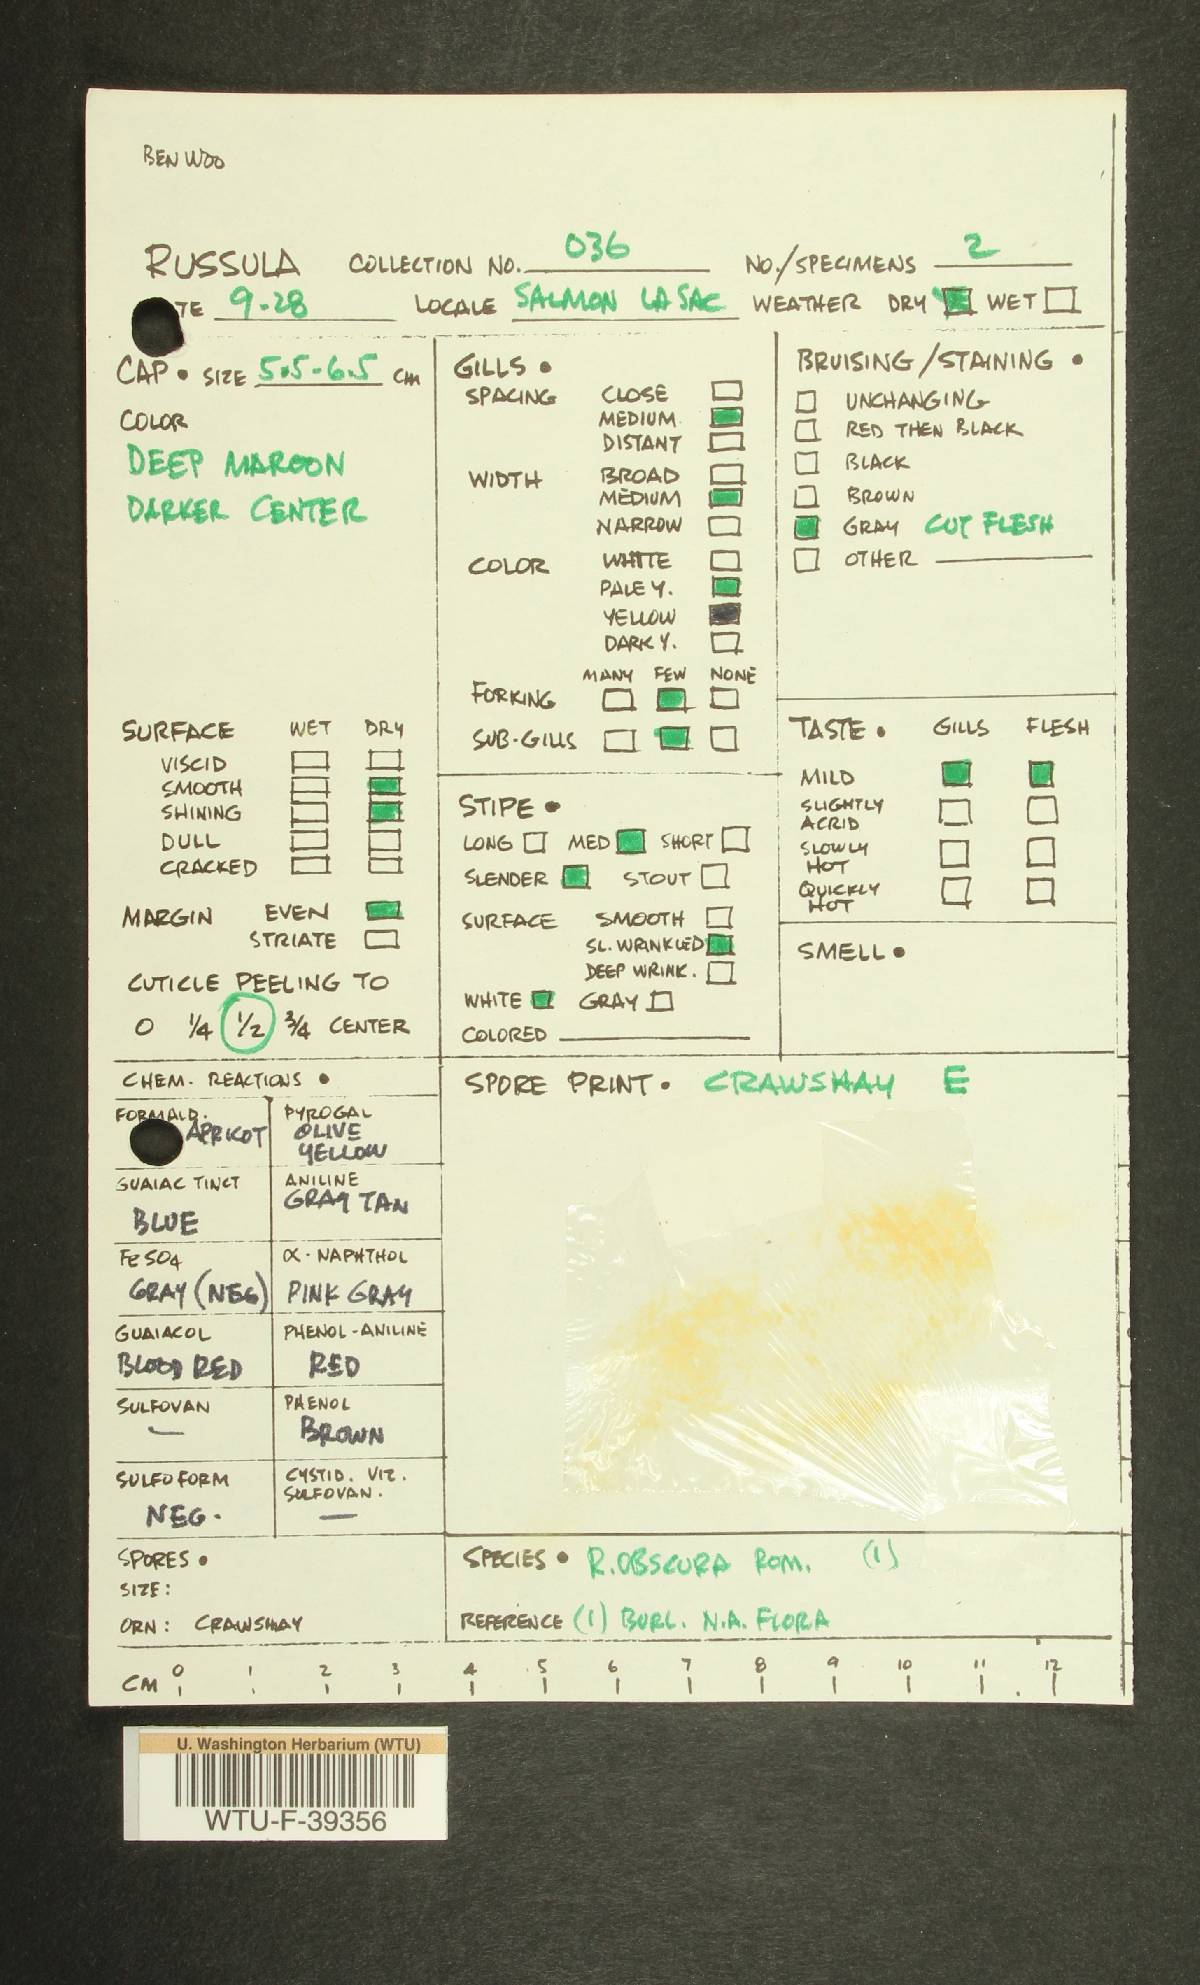 BEN WOO
RUSSULA COLLECTION NO. 036 NO./SPECIMENS 2
TE 9-28 LOCALE SALMON LA SAC WEATHER DRY WET
CAP • SIZE 5.5-6.5 CM
COLOR
DEEP MAROON
DARKER CENTER
SURFACE WET DRY
VISCID
SMOOTH
SHINING
DULL
CRACKED
MARGIN EVEN
STRIATE
CUTICLE PEELING TO
0 1/4 1/2 3/4 CENTER
GILLS •
SPACING CLOSE
MEDIUM
DISTANT
WIDTH BROAD
MEDIUM
NARROW
COLOR WHITE
PALE Y.
YELLOW
DARK Y.
MANY FEW NONE
FORKING
SUB-GILLS
STIPE •
LONG MED SHORT
SLENDER STOUT
SURFACE SMOOTH
SL. WRINKLED
DEEP WRINK.
WHITE GRAY
COLORED
BRUISING/STAINING •
UNCHANGING
RED THEN BLACK
BLACK
BROWN
GRAY CUT FLESH
OTHER
TASTE • GILLS FLESH
MILD
SLIGHTLY
ACRID
SLOWLY
HOT
QUICKLY
HOT
SMELL •
CHEM. REACTIONS •
FORMALD.
APRICOT
PYROGAL
OLIVE
YELLOW
GUAIAC TINCT
BLUE
ANILINE
GRAY TAN
FE SO4
GRAY (NEG)
α-NAPHTHOL
PINK GRAY
GUAIACOL
BLOOD RED
PHENOL-ANILINE
RED
SULFOVAN
—
PHENOL
BROWN
SULFOFORM
NEG.
CYSTID. VIZ.
SULFOVAN.
—
SPORE PRINT • CRAWSHAY E
SPORES •
SIZE:
ORN: CRAWSHAY
SPECIES • R. OBSCURA ROM. (1)
REFERENCE (1) BURL. N.A. FLORA
CM 0 1 2 3 4 5 6 7 8 9 10 11 12
U. Washington Herbarium (WTU)
WTU-F-39356